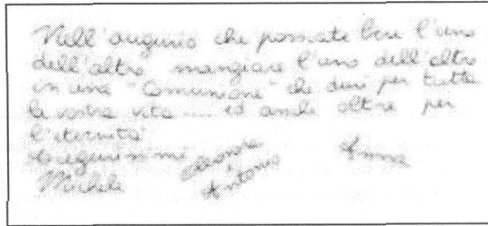 Nell'augurio che possate bere l'uno
dell'altro mangiare l'uno dell'altro
in una "Comunione" che duri per tutta
la vostra vita..... ed anche oltre per
l'eternità
Auguronimi
Michele Eleonora Anna
e
Antonio